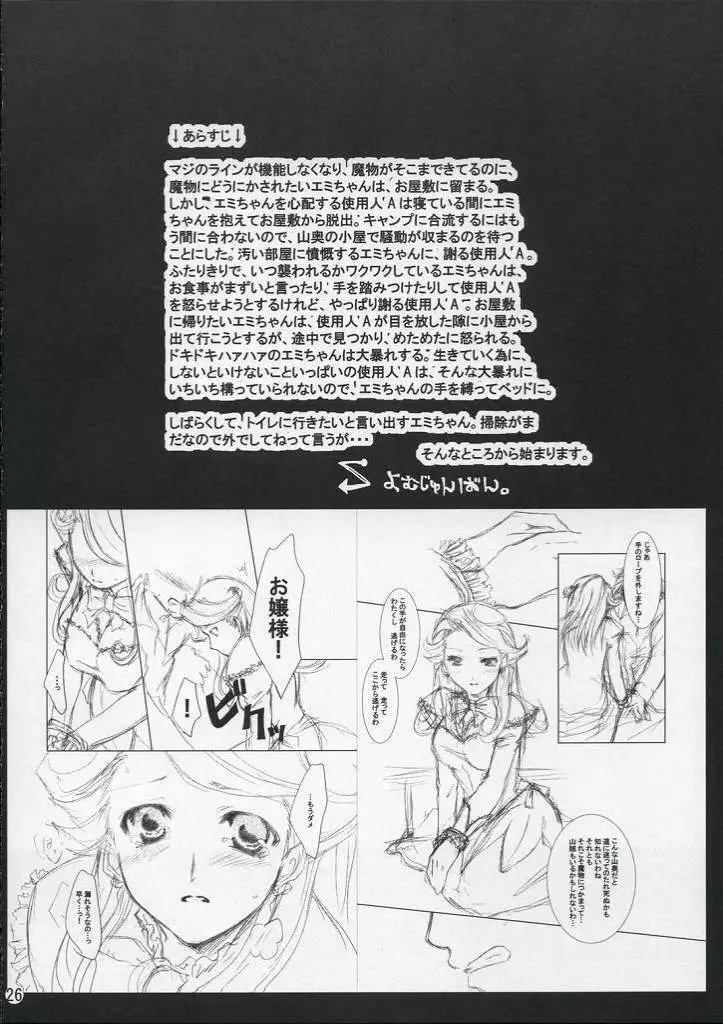 ↓あらすじ↓
マジのラインが機能しなくなり、魔物がそこまできてるのに、
魔物にどうにかされたいエミちゃんは、お屋敷に留まる。
しかし、エミちゃんを心配する使用人Aは寝ている間にエミ
ちゃんを抱えてお屋敷から脱出。キャンプに合流するにはも
う間に合わないので、山奥の小屋で騒動が収まるのを待つ
ことにした。汚い部屋に憤慨するエミちゃんに、謝る使用人A。
ふたりきりで、いつ襲われるかワクワクしているエミちゃんは、
お食事がまずいと言ったり、手を踏みつけたりして使用人A
を怒らせようとするけれど、やっぱり謝る使用人A。お屋敷
に帰りたいエミちゃんは、使用人Aが目を放した隙に小屋から
出て行こうとするが、途中で見つかり、めためたに怒られる。
ドキドキハァハァのエミちゃんは大暴れする。生きていく為に、
しないといけないこといっぱいの使用人Aは、そんな大暴れに
いちいち構っていられないので、エミちゃんの手を縛ってベッドに。
しばらくして、トイレに行きたいと言い出すエミちゃん。掃除がま
だなので外でしてねって言うが・・・
そんなところから始まります。
よむじゅんばん。
じゃあ
手のロープを外しますね…
この手が自由になったら
わたくし 逃げるわ
走って 走って
ここから逃げるわ
こんな山奥だと
道に迷ってのたれ死ぬかも
知れないわね
それとも
それこそ魔物につかまって…
山賊もいるかもしれないわ…
お嬢様！
！
ビクッ
…っ
…もうダメ
漏れそうなの…っ
早く…っ！
26